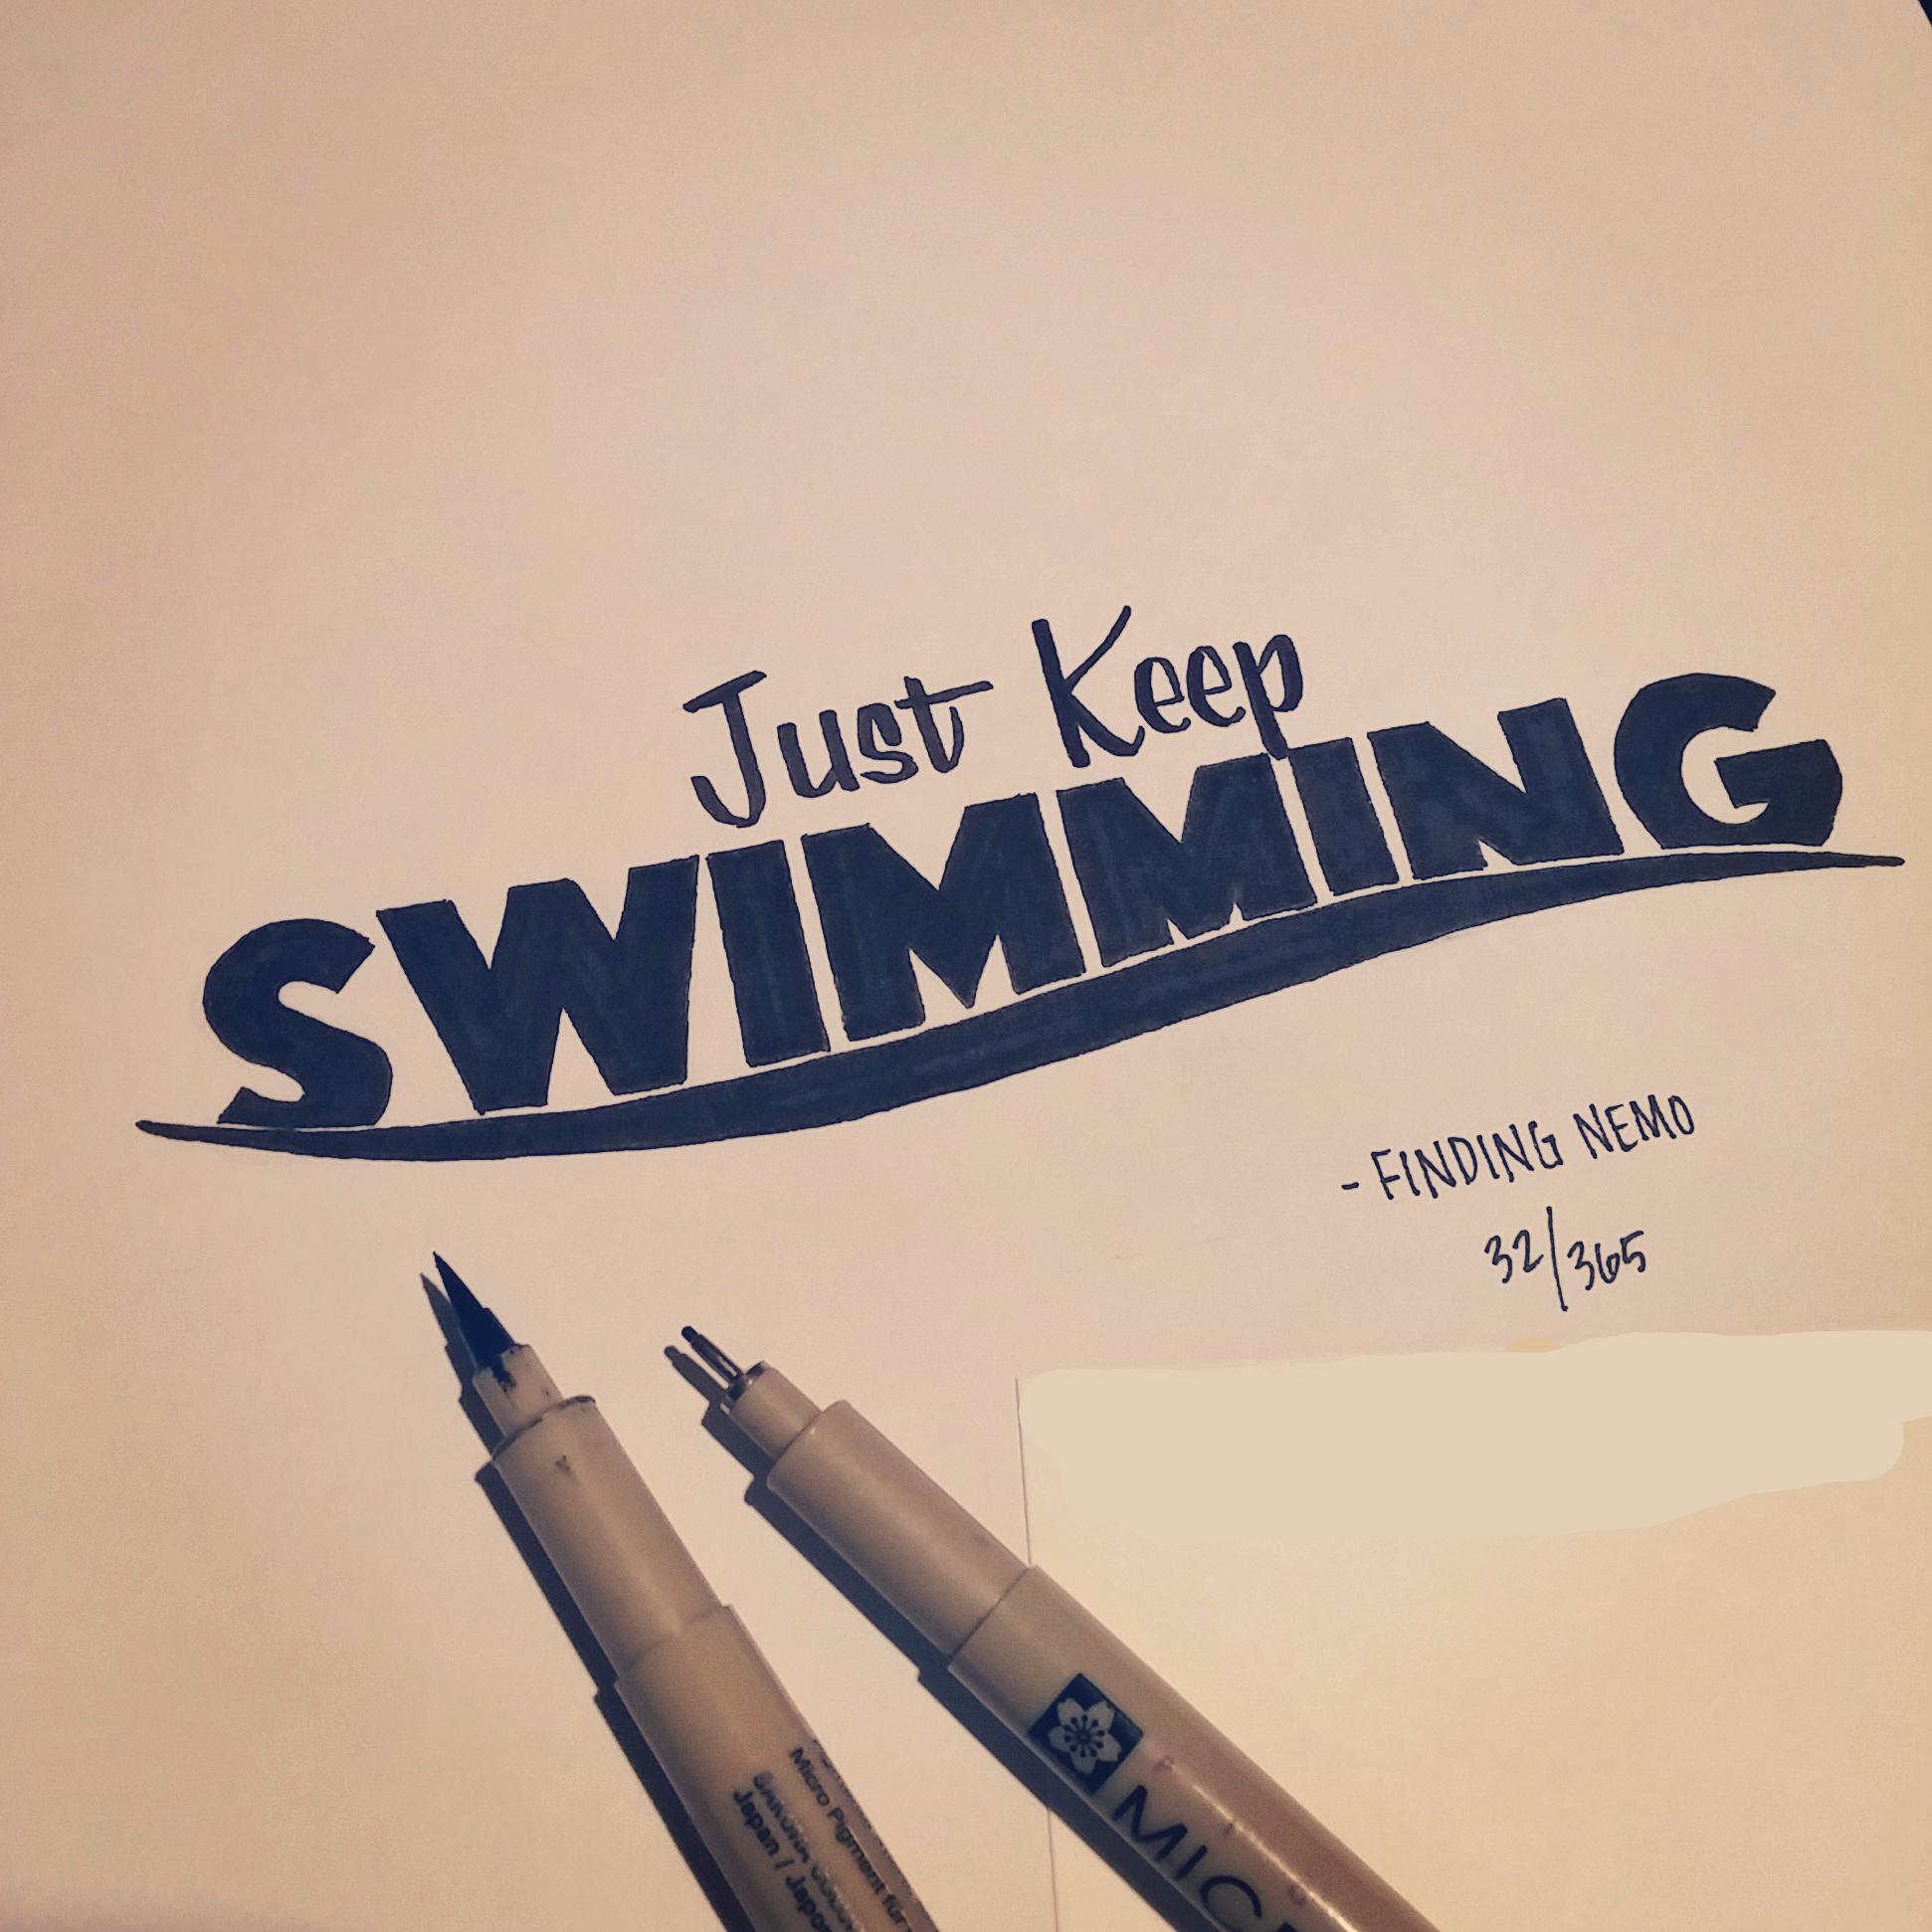 Just Keep
SWIMMING
- FINDING NEMO
32/365
Micro Pigment für
SAKURA COLOR
Japan / Japon
MICR